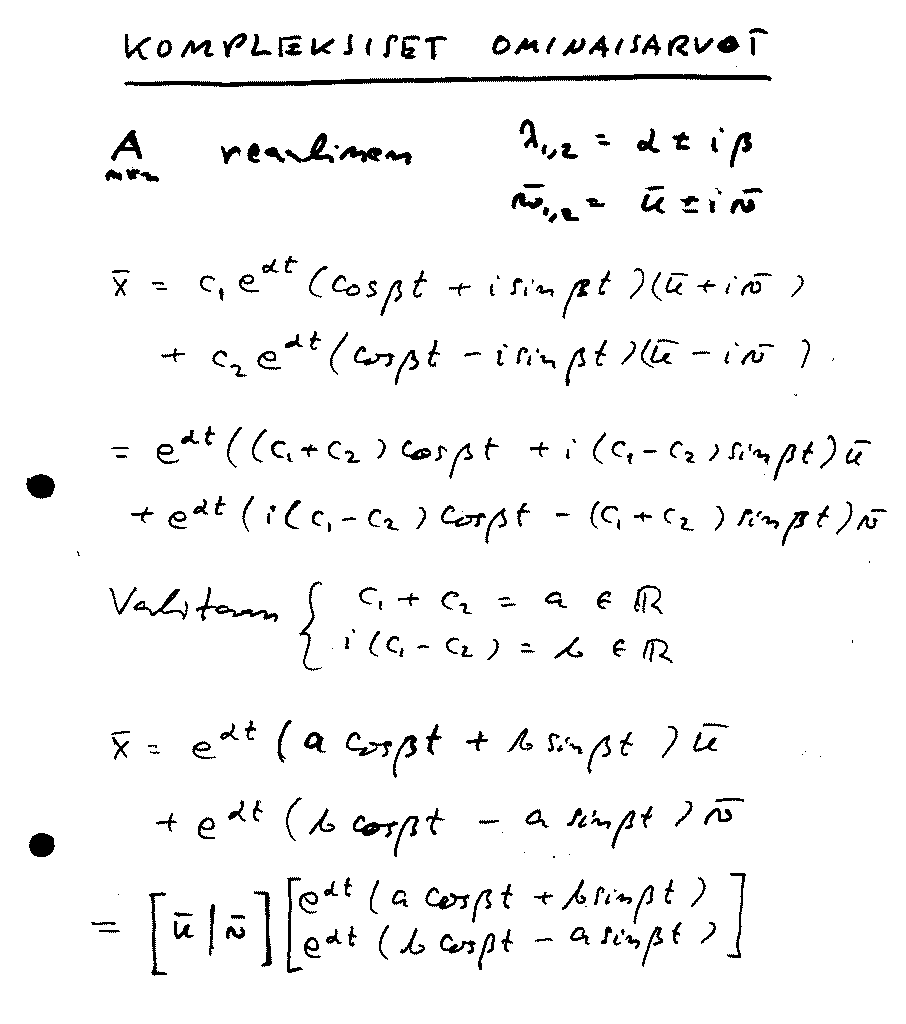 KOMPLEKSISET OMINAISARVOT
A reaalinen λ₁,₂ = α ± iβ
n×n w̄₁,₂ = ū ± i v̄
x̄ = c₁ e^{αt} (cosβt + i sinβt)(ū + i v̄)
+ c₂ e^{αt} (cosβt - i sinβt)(ū - i v̄).
= e^{αt} ((c₁+c₂) cosβt + i (c₁-c₂) sinβt) ū
+ e^{αt} (i(c₁-c₂) cosβt - (c₁+c₂) sinβt) v̄
Valitaan { c₁ + c₂ = a ∈ ℝ
i (c₁-c₂) = b ∈ ℝ
x̄ = e^{αt} (a cosβt + b sinβt) ū
+ e^{αt} (b cosβt - a sinβt) v̄
= [ū | v̄] [e^{αt} (a cosβt + b sinβt)
e^{αt} (b cosβt - a sinβt)]